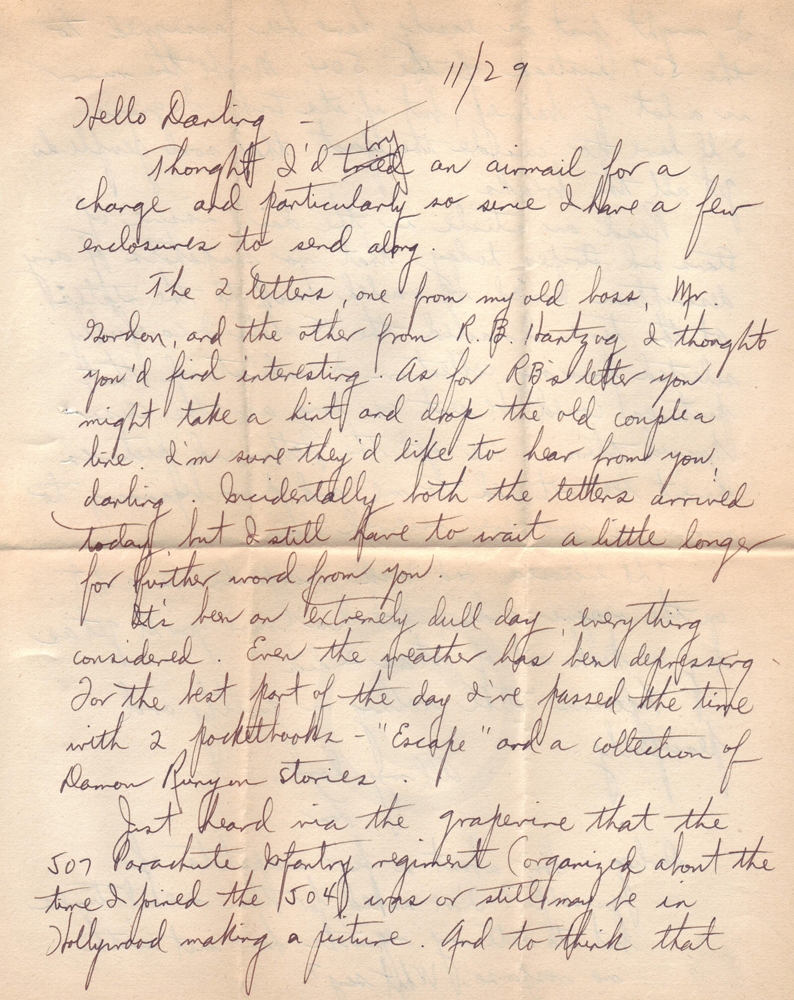 11/29
Hello Darling -
try
Thought I'd tried an airmail for a
change and particularly so since I have a few
enclosures to send along.
The 2 letters, one from my old boss, Mr.
Gordon, and the other from R. B. Hantzog I thought
you'd find interesting. As for RB's letter you
might take a hint and drop the old couple a
line. I'm sure they'd like to hear from you,
darling. Incidentally both the letters arrived
today but I still have to wait a little longer
for further word from you.
It's been an extremely dull day, everything
considered. Even the weather has been depressing.
For the best part of the day I've passed the time
with 2 pocketbooks - "Escape" and a collection of
Damon Runyon stories.
Just heard via the grapevine that the
507 Parachute Infantry regiment (organized about the
time I joined the 504) was or still may be in
Hollywood making a picture. And to think that